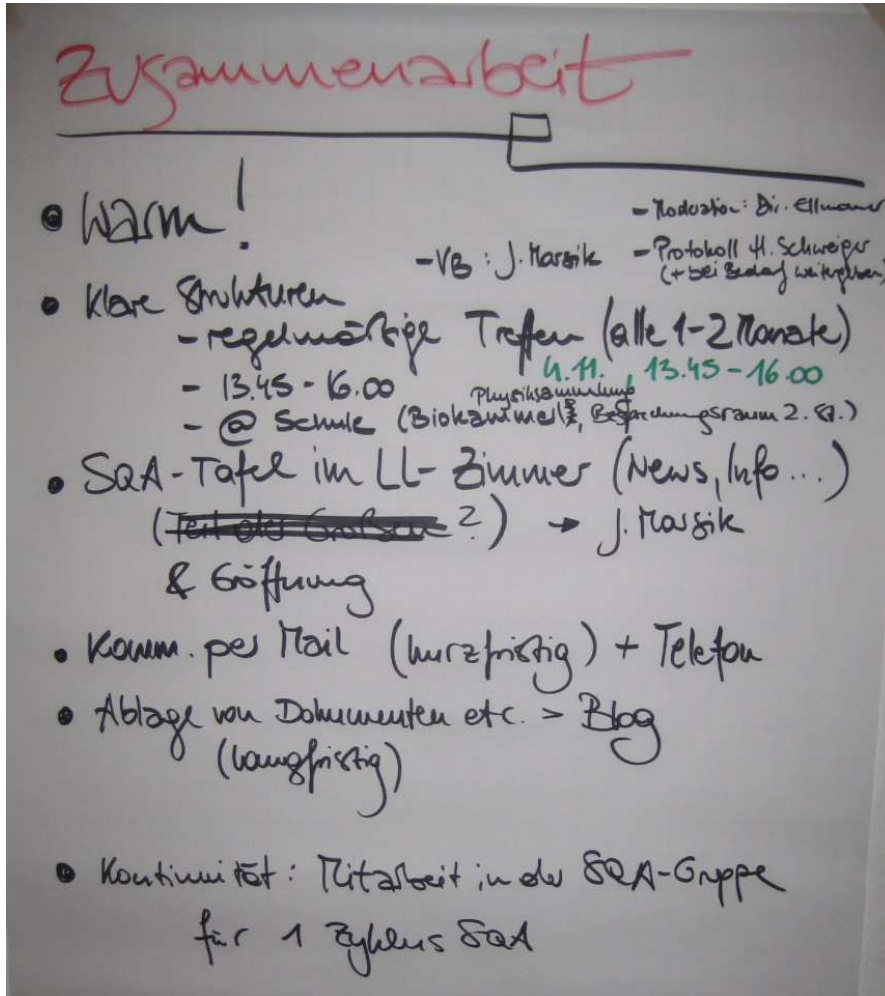 Zusammenarbeit
• Warm!
- Moderation: Dir. Ellmauer
- VB: J. Marsik
- Protokoll H. Schweiger
(+ bei Bedarf weitergeben)
• Klare Strukturen
- regelmäßige Treffen (alle 1-2 Monate)
4.11., 13.45-16.00
- 13.45-16.00
Physiksammlung
- @ Schule (Biokammerl, Besprechungsraum 2. St.)
• SQA-Tafel im LL-Zimmer (News, Info...)
(Teil der Großen?) → J. Marsik
& Eröffnung
• Komm. per Mail (kurzfristig) + Telefon
• Ablage von Dokumenten etc. > Blog
(langfristig)
• Kontinuität: Mitarbeit in der SQA-Gruppe
für 1 Zyklus SQA